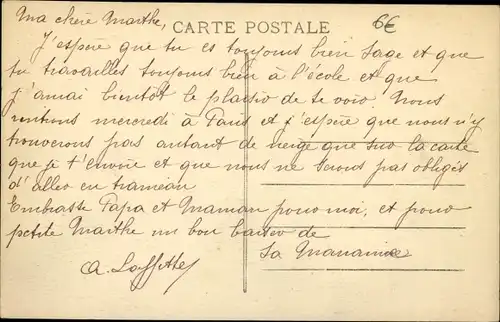 Ma chère Marthe,
CARTE POSTALE
6€
J'espère que tu es toujours bien sage et que
tu travailles toujours bien à l'école et que
j'aurai bientôt le plaisir de te voir. Nous
rentrons mercredi à Paris et j'espère que nous n'y
trouverons pas autant de neige que sur la carte
que je t'envoie et que nous ne serons pas obligés
d'aller en traineau
Embrasse Papa et Maman pour moi, et pour
petite Marthe un bon baiser de
Sa Marraine
A. Laffitte